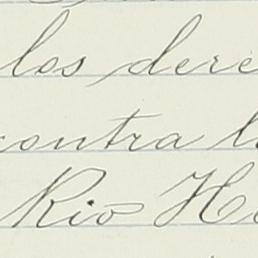 los dere
contra l
Rio H